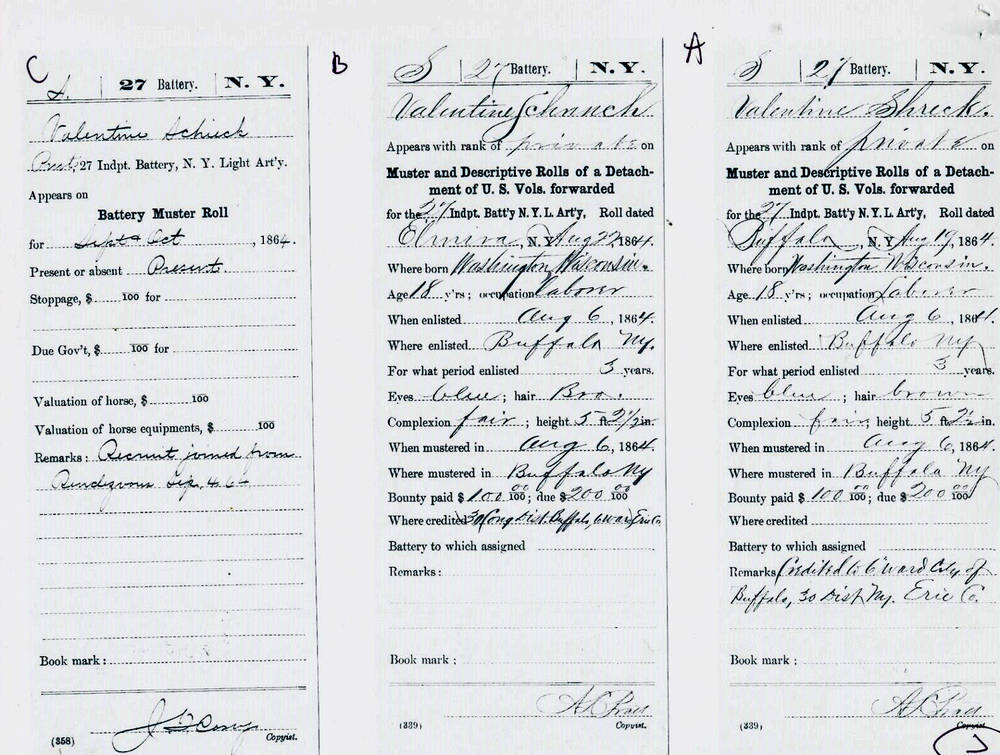 C
S. 27 Battery. N. Y.
Valentine Schieck
Pvt, 27 Indpt. Battery, N. Y. Light Art'y.
Appears on
Battery Muster Roll
for Sept & Oct, 1864.
Present or absent Present.
Stoppage, $ 100 for
Due Gov't, $ 100 for
Valuation of horse, $ 100
Valuation of horse equipments, $ 100
Remarks: Recruit joined from
Rendezvous Sep. 4. 64.
Book mark:
(358) Copyist.
B
S 27 Battery. N. Y.
Valentine Schnuch
Appears with rank of private on
Muster and Descriptive Rolls of a Detach-
ment of U. S. Vols. forwarded
for the 27 Indpt. Batt'y N. Y. L. Art'y, Roll dated
Elmira, N. Y. Aug 22, 1864.
Where born Washington, Wisconsin.
Age 18 y'rs; occupation Laborer
When enlisted Aug 6, 1864.
Where enlisted Buffalo Ny.
For what period enlisted 3 years.
Eyes blue; hair Bro.
Complexion fair; height 5 ft. 2 1/2 in.
When mustered in Aug 6, 1864.
Where mustered in Buffalo Ny
Bounty paid $ 100 00/100; due $ 200 00/100
Where credited 30 Cong Dist. Buffalo, 6 Ward Erie Co.
Battery to which assigned
Remarks:
Book mark:
(339) Copyist.
A
S 27 Battery. N. Y.
Valentine Shreck.
Appears with rank of private on
Muster and Descriptive Rolls of a Detach-
ment of U. S. Vols. forwarded
for the 27 Indpt. Batt'y N. Y. L. Art'y, Roll dated
Buffalo, N. Y. Aug 19, 1864.
Where born Washington Wisconsin.
Age 18 y'rs; occupation Laborer
When enlisted Aug 6, 1864.
Where enlisted Buffalo Ny
For what period enlisted 3 years.
Eyes blue; hair brown
Complexion fair; height 5 ft. 2 1/2 in.
When mustered in Aug 6, 1864.
Where mustered in Buffalo Ny
Bounty paid $ 100 00/100; due $ 200 00/100
Where credited
Battery to which assigned
Remarks: Credited to 6" ward City of
Buffalo, 30 Dist Ny. Erie Co.
Book mark:
(339) Copyist